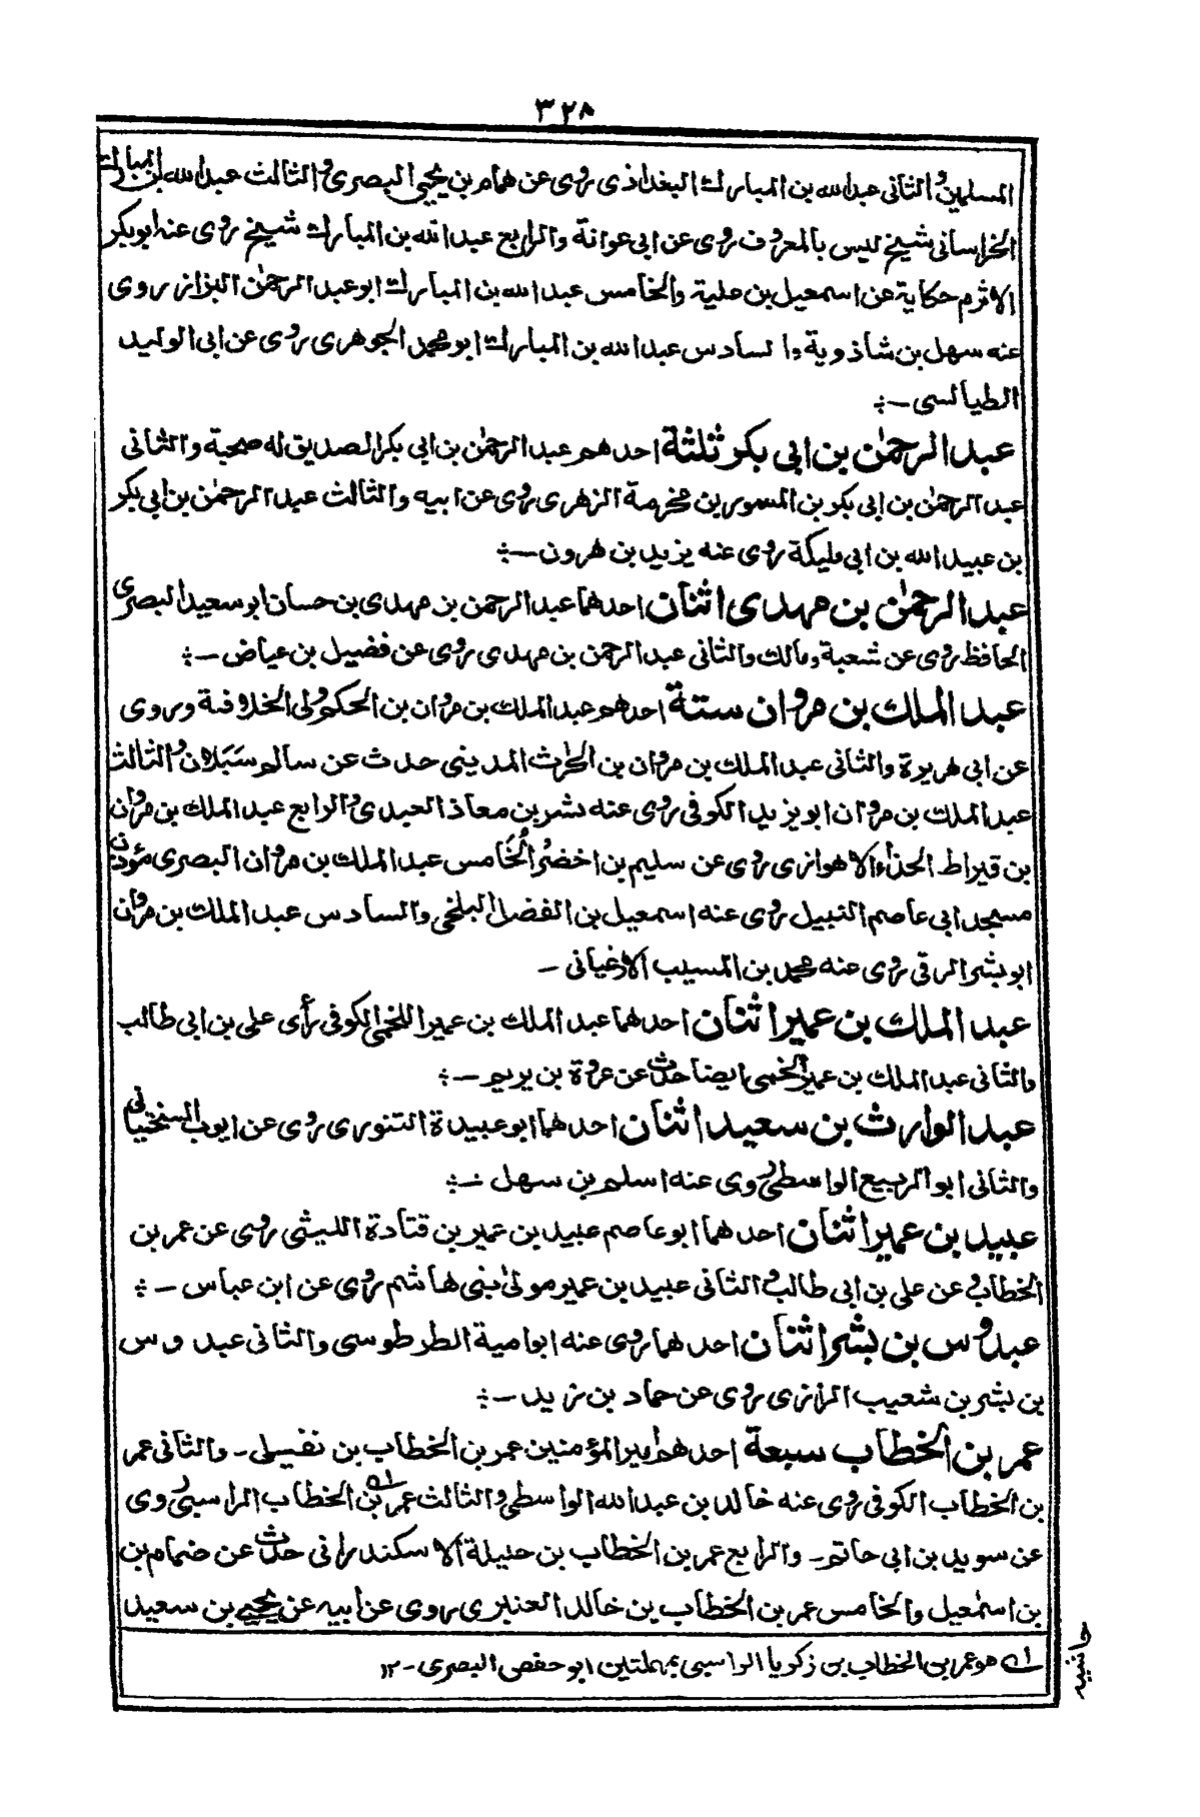 ٣٢٨
المسلمين والثانى عبدالله بن المبارك البغداذى روى عن همام بن يحيى البصرى والثالث عبدالله ابن المبارك
الخراسانى شيخ ليس بالمعروف روى عن ابى عوانة والرابع عبدالله بن المبارك شيخ روى عنه ابوبكر
الاثرم حكاية عن اسمعيل بن علية والخامس عبدالله بن المبارك ابو عبدالرحمٰن البزاز روى
عنه سهل بن شاذوية والسادس عبدالله بن المبارك ابو محمد الجوهرى روى عن ابى الوليد
الطيالسى -:
عبد الرحمٰن بن ابى بكر ثلثة احدهم عبد الرحمٰن بن ابى بكر الصديق له صحبة والثانى
عبد الرحمٰن بن ابى بكر بن المسور بن مخرمة الزهرى روى عن ابيه والثالث عبد الرحمٰن بن ابى بكر
بن عبيد الله بن ابى مليكة روى عنه يزيد بن هرون -:
عبد الرحمٰن بن مهدى اثنان احدهما عبد الرحمن بن مهدى بن حسان ابو سعيد البصرى
الحافظ روى عن شعبة ومالك والثانى عبد الرحمن بن مهدى روى عن فضيل بن عياض -:
عبد الملك بن مروان ستة احدهم عبد الملك بن مروان بن الحكم ولى الخلافة وروى
عن ابى هريرة والثانى عبد الملك بن مروان بن الحارث المدينى حدث عن سالم سبلان والثالث
عبد الملك بن مروان ابو يزيد الكوفى روى عنه بشر بن معاذ العبدى والرابع عبد الملك بن مروان
بن قيراط الحذاء الاهوازى روى عن سليم بن اخضر والخامس عبد الملك بن مروان البصرى مؤذن
مسجد ابى عاصم النبيل روى عنه اسمعيل بن الفضل البلخى والسادس عبد الملك بن مروان
ابو بشر الرقى روى عنه محمد بن المسيب الارغيانى -
عبد الملك بن عمير اثنان احدهما عبد الملك بن عمير اللخمى الكوفى رأى على بن ابى طالب
والثانى عبد الملك بن عمير اللخمى ايضا حدث عن عروة بن بريم -:
عبد الوارث بن سعيد اثنان احدهما ابو عبيدة التنورى روى عن ايوب السختيانى
والثانى ابو الربيع الواسطى روى عنه اسلم بن سهل -:
عبيد بن عمير اثنان احدهما ابو عاصم عبيد بن عمير بن قتادة الليثى روى عن عمر بن
الخطاب وعن على بن ابى طالب والثانى عبيد بن عمير مولىٰ بنى هاشم روى عن ابن عباس -:
عبدوس بن بشر اثنان احدهما روى عنه ابوامية الطرطوسى والثانى عبدوس
بن بشر بن شعيب الرازى روى عن حماد بن زيد -:
عمر بن الخطاب سبعة احدهم امير المؤمنين عمر بن الخطاب بن نفيل - والثانى عمر
بن الخطاب الكوفى روى عنه خالد بن عبدالله الواسطى والثالث عمر بن الخطاب الراسبى روى
عن سويد بن ابى حاتم - والرابع عمر بن الخطاب بن حليلة الاسكندرانى حدث عن ضمام بن
بن اسمٰعيل والخامس عمر بن الخطاب بن خالد العنبرى روى عن ابيه عن يحيى بن سعيد
حاشيه
له هو عمر بن الخطاب بن زكريا الراسبى بمهملتين ابو حفص البصرى - ١٢